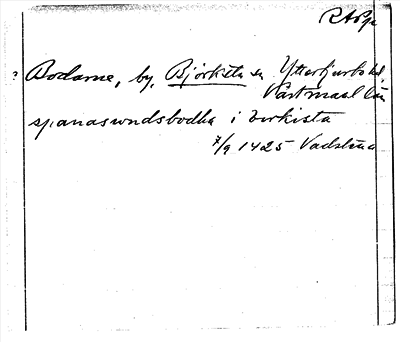 RAPp
? Bodarne, by, Björksta sn Ytterfjurbo hd,
Västmanl. län
spanasundsbodha i birkista
7/9 1425 Vadstena